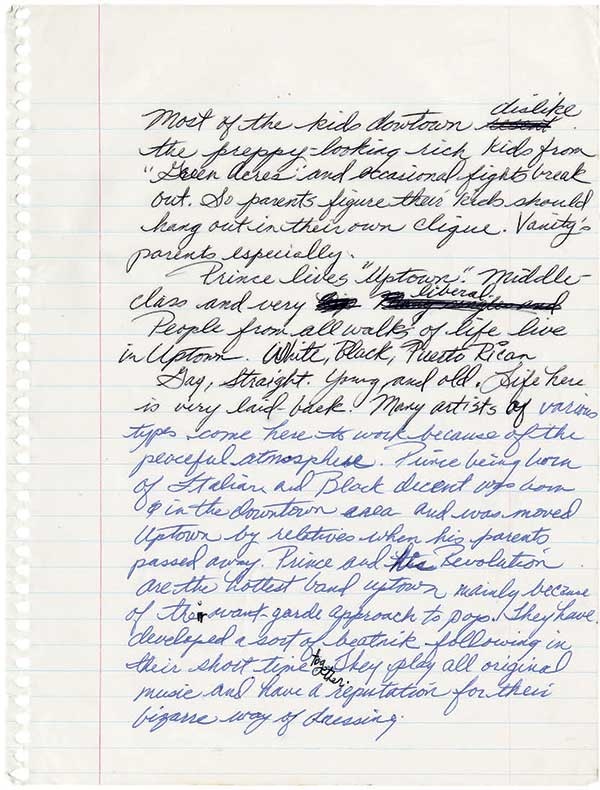 Most of the kids dowtown dislike
the preppy-looking rich kids from
"Green Acres" and occasional fights break
out. So parents figure their kids should
hang out in their own clique. Vanity's
parents especially.
Prince lives "Uptown". Middle-
class and very liberal.
People from all walks of life live
in Uptown. White, Black, Puerto Rican
Gay, Straight. Young and old. Life here
is very laid back. Many artists of various
types come here to work because of the
peaceful atmosphere. Prince being born
of Italian and Black decent was born
in the downtown area and was moved
Uptown by relatives when his parents
passed away. Prince and his Revolution
are the hottest band uptown mainly because
of their avant-garde approach to pop. They have
developed a sort of beatnik following in
their short time together. They play all original
music and have a reputation for their
bizarre way of dressing.